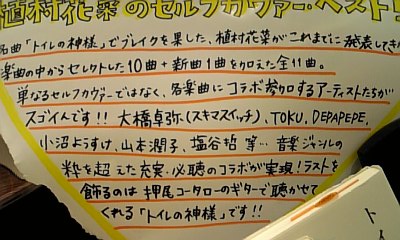 植村花菜のセルフカヴァー・ベスト!
名曲「トイレの神様」でブレイクを果した、植村花菜がこれまでに発表してきた
楽曲の中からセレクトした10曲+新曲1曲を加えた全11曲。
単なるセルフカヴァーではなく、各楽曲にコラボ参加するアーティストたちが
スゴイんです!!大橋卓弥(スキマスイッチ)、TOKU、DEPAPEPE、
小沼ようすけ、山本潤子、塩谷哲 等… 音楽ジャンルの
粋を超えた充実、必聴のコラボが実現!ラストを
飾るのは押尾コータローのギターで聴かせて
くれる「トイレの神様」です!!
トイ